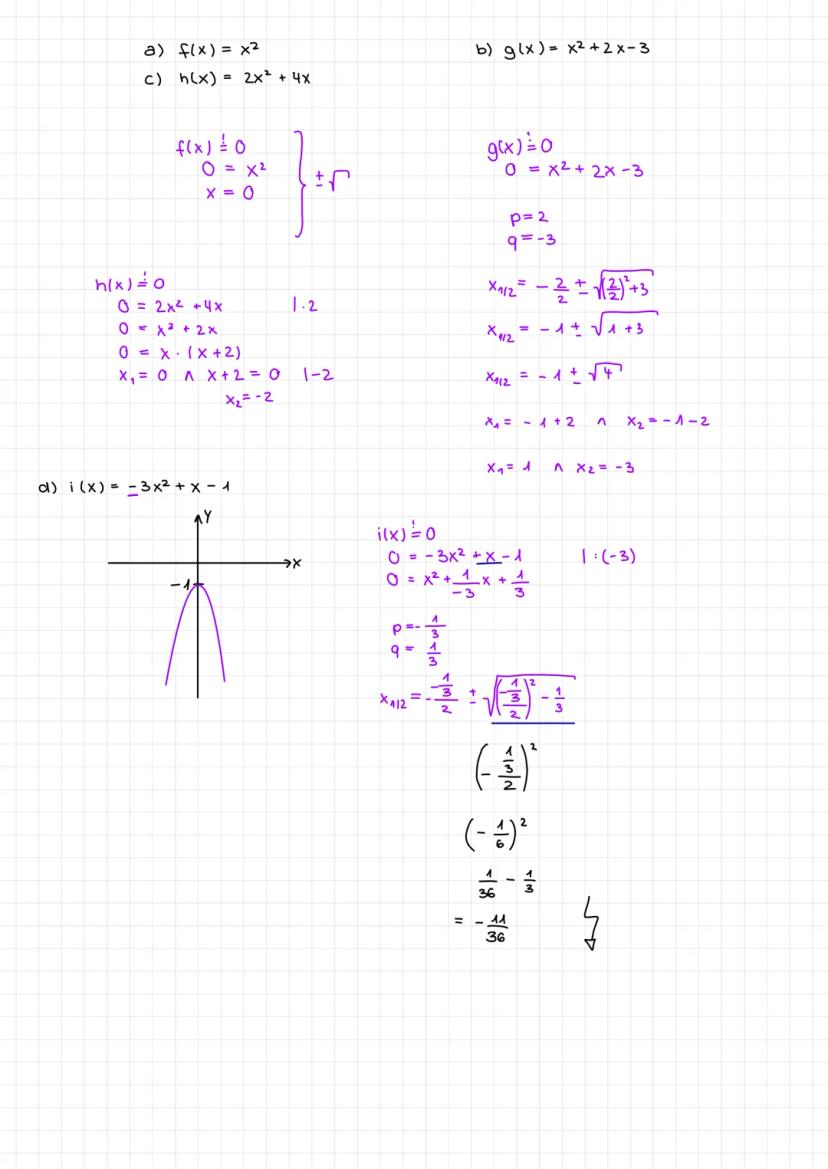 a) f(x) = x²
b) g(x) = x² + 2x - 3
c) h(x) = 2x² + 4x
f(x) ≟ 0
0 = x²
x = 0
± √
g(x) ≟ 0
0 = x² + 2x - 3
p = 2
q = -3
x₁/₂ = - 2/2 ± √((2/2)² + 3)
x₁/₂ = - 1 ± √(1 + 3)
x₁/₂ = - 1 ± √4
x₁ = - 1 + 2 ∧ x₂ = - 1 - 2
x₁ = 1 ∧ x₂ = -3
h(x) ≟ 0
0 = 2x² + 4x | · 2
0 = x² + 2x
0 = x · (x + 2)
x₁ = 0 ∧ x + 2 = 0 | -2
x₂ = -2
d) i(x) = -3x² + x - 1
Y
X
-1
i(x) ≟ 0
0 = -3x² + x - 1 | : (-3)
0 = x² + 1/-3 x + 1/3
p = - 1/3
q = 1/3
x₁/₂ = - (-1/3)/2 ± √(((-1/3)/2)² - 1/3)
(- (1/3)/2)²
(- 1/6)²
1/36 - 1/3
= - 11/36